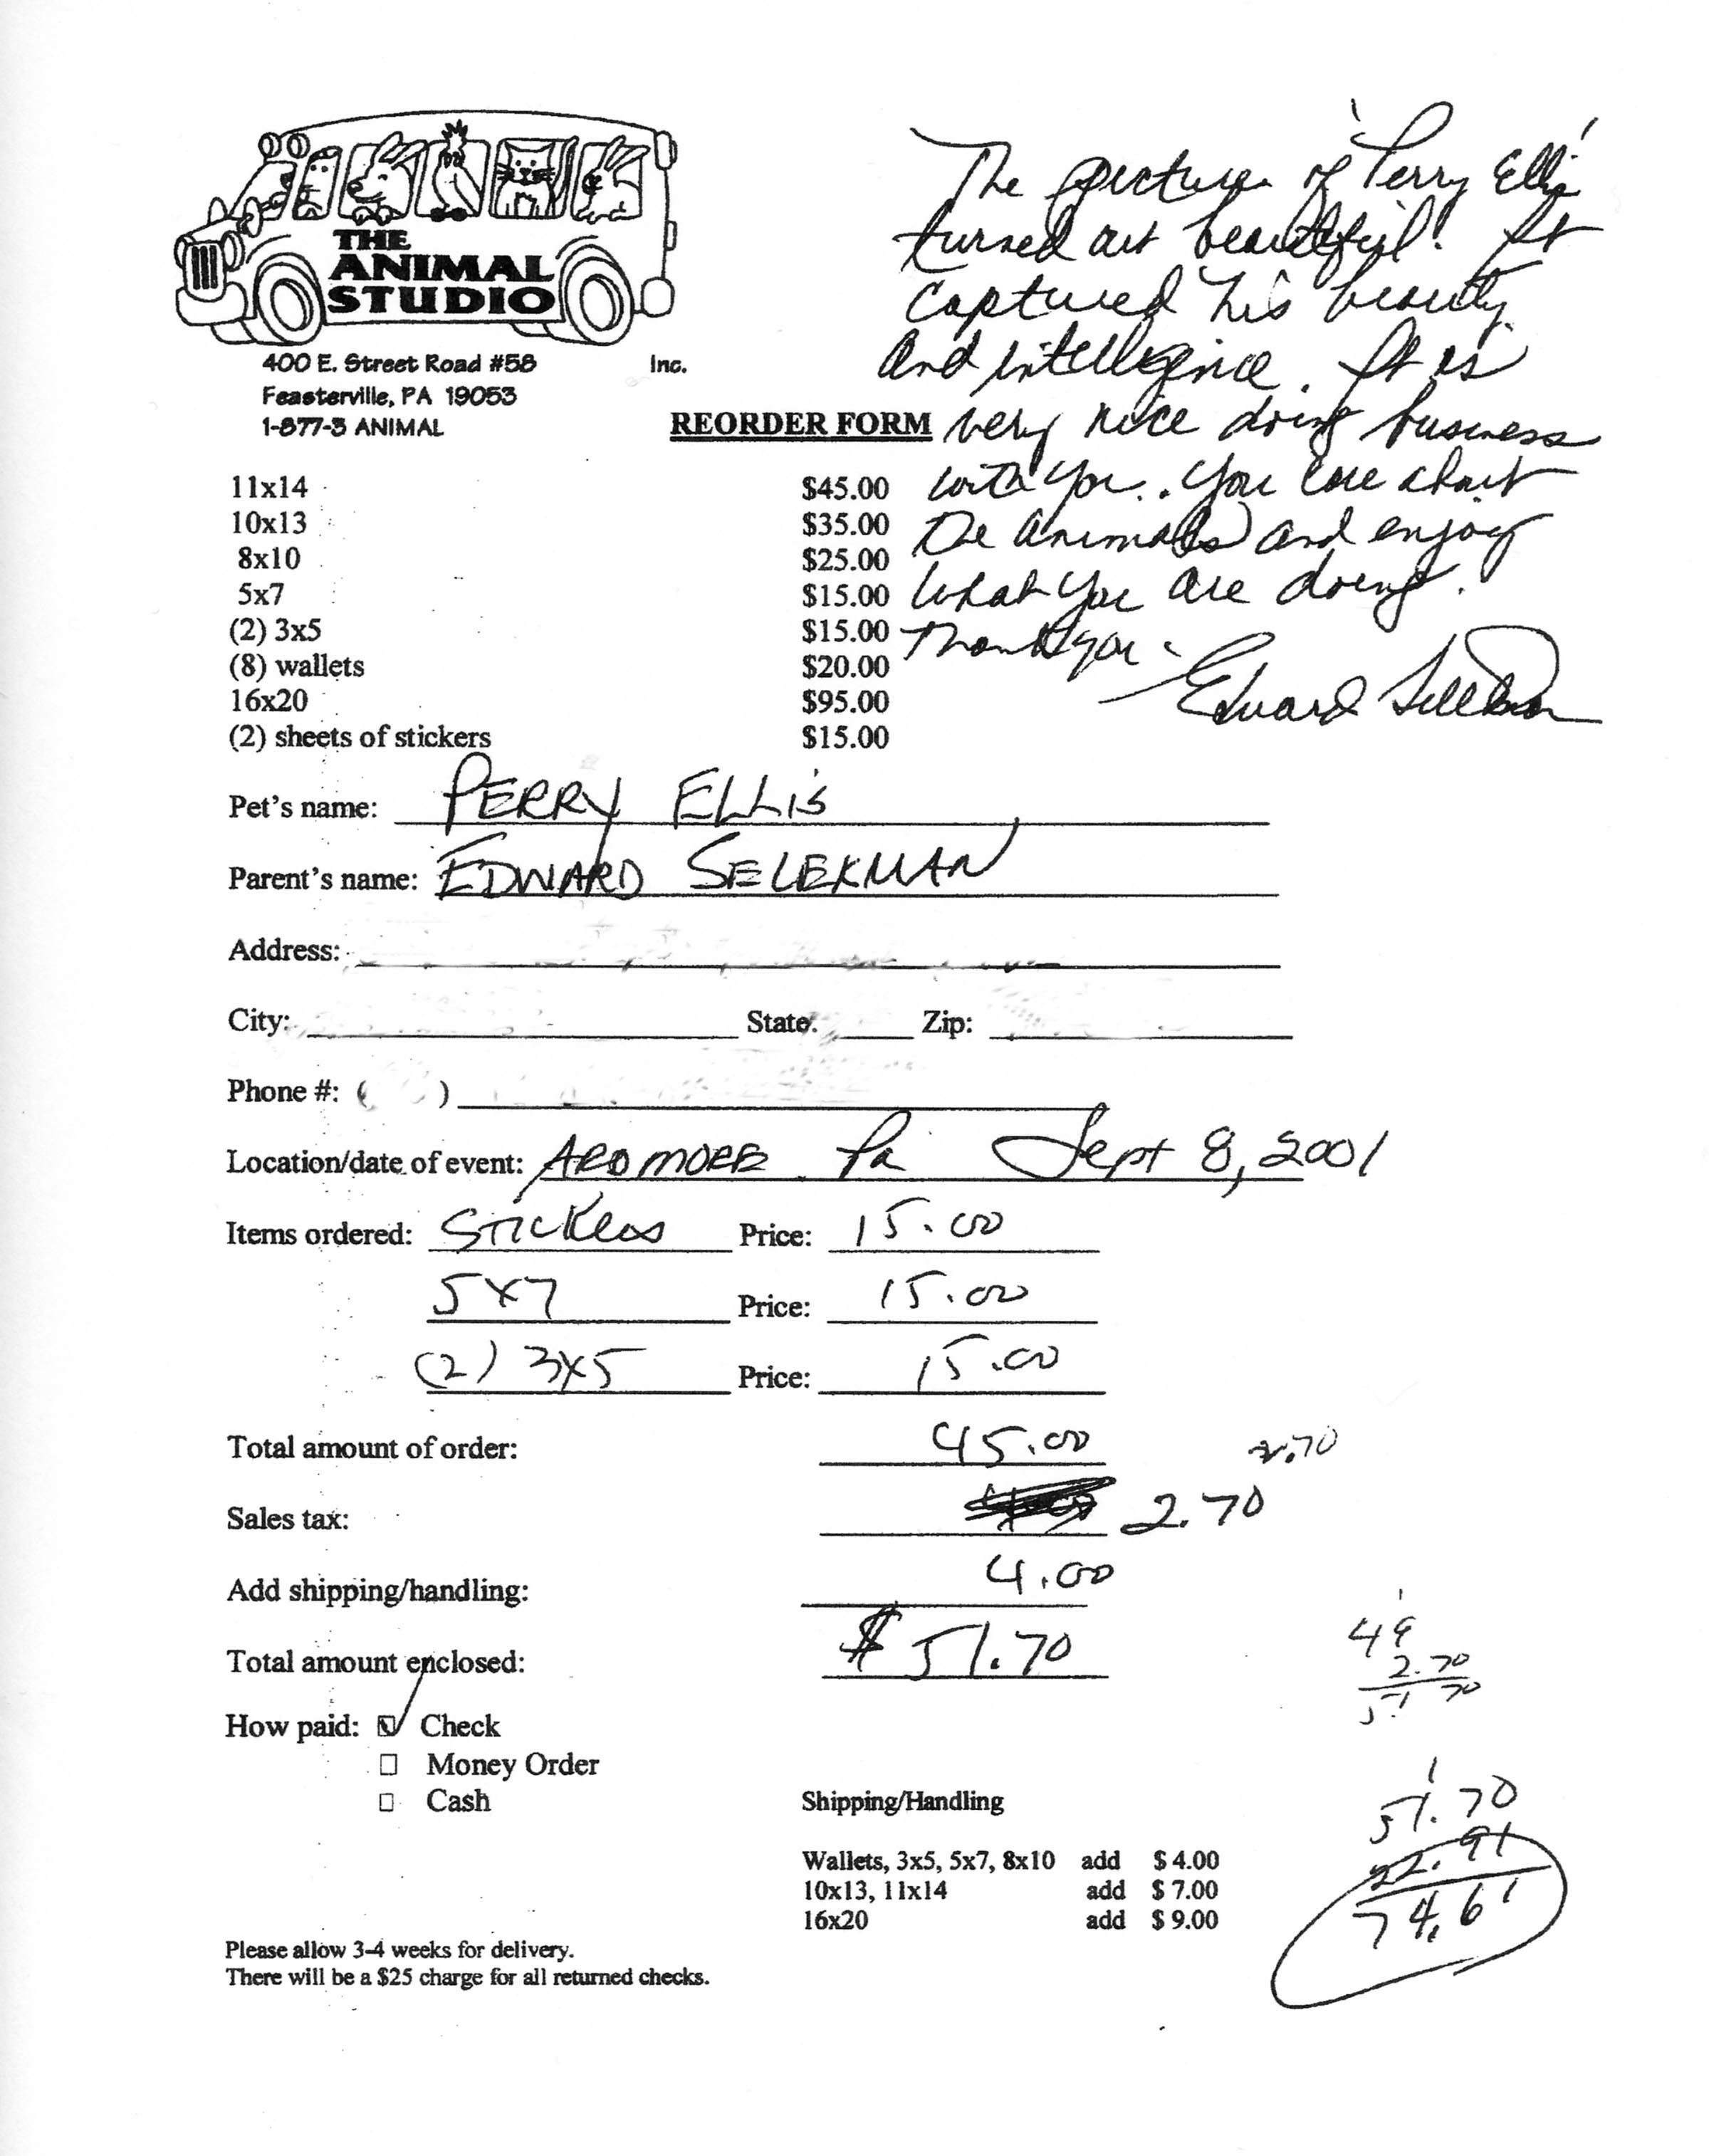 THE
ANIMAL
STUDIO
400 E. Street Road #58 Inc.
Feasterville, PA 19053
1-877-3 ANIMAL
REORDER FORM
The picture of 'Perry Ellis'
turned out beautiful! It
captured his beauty
and intelligence. It is
very nice doing business
with you. You care about
the animals and enjoy
what you are doing.
Thank you -
Edward Selekman
11x14 $45.00
10x13 $35.00
8x10 $25.00
5x7 $15.00
(2) 3x5 $15.00
(8) wallets $20.00
16x20 $95.00
(2) sheets of stickers $15.00
Pet's name: PERRY ELLIS
Parent's name: EDWARD SELEKMAN
Address:
City: State: Zip:
Phone #: ( )
Location/date of event: ARDMORE Pa Sept 8, 2001
Items ordered: Stickers Price: 15.00
5x7 Price: 15.00
(2) 3x5 Price: 15.00
Total amount of order: 45.00 2.70
Sales tax: 2.70
Add shipping/handling: 4.00
Total amount enclosed: $51.70
How paid: Check
Money Order
Cash
1
49
2.70
51 70
Shipping/Handling
Wallets, 3x5, 5x7, 8x10 add $4.00
10x13, 11x14 add $7.00
16x20 add $9.00
1
51.70
22.91
74.61
Please allow 3-4 weeks for delivery.
There will be a $25 charge for all returned checks.